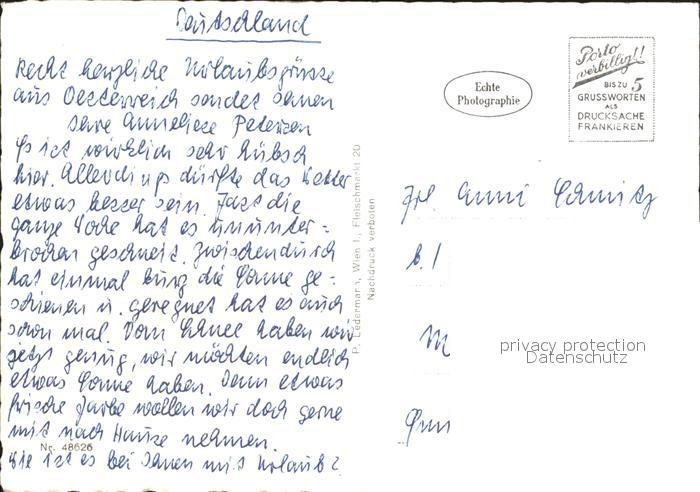 Deutschland
Recht herzliche Urlaubsgrüsse
aus Oesterreich sendet Ihnen
Ihre Anneliese Petersen
Es ist wirklich sehr hübsch
hier. Allerdings dürfte das Wetter
etwas besser sein. Fast die
ganze Woche hat es ununter=
brochen geschneit. Zwischendurch
hat einmal kurz die Sonne ge=
schienen u. geregnet hat es auch
schon mal. Vom Schnee haben wir
jetzt genug, wir möchten endlich
etwas Sonne haben. Denn etwas
frische Farbe wollen wir doch gerne
mit nach Hause nehmen.
Wie ist es bei Ihnen mit Urlaub?
Nr. 48626
P. Ledermann, Wien I., Fleischmarkt 20
Nachdruck verboten
Echte
Photographie
Porto
verbilligt!!
BIS ZU 5
GRUSSWORTEN
ALS
DRUCKSACHE
FRANKIEREN
Frl. Anni Schmitz
privacy protection
Datenschutz